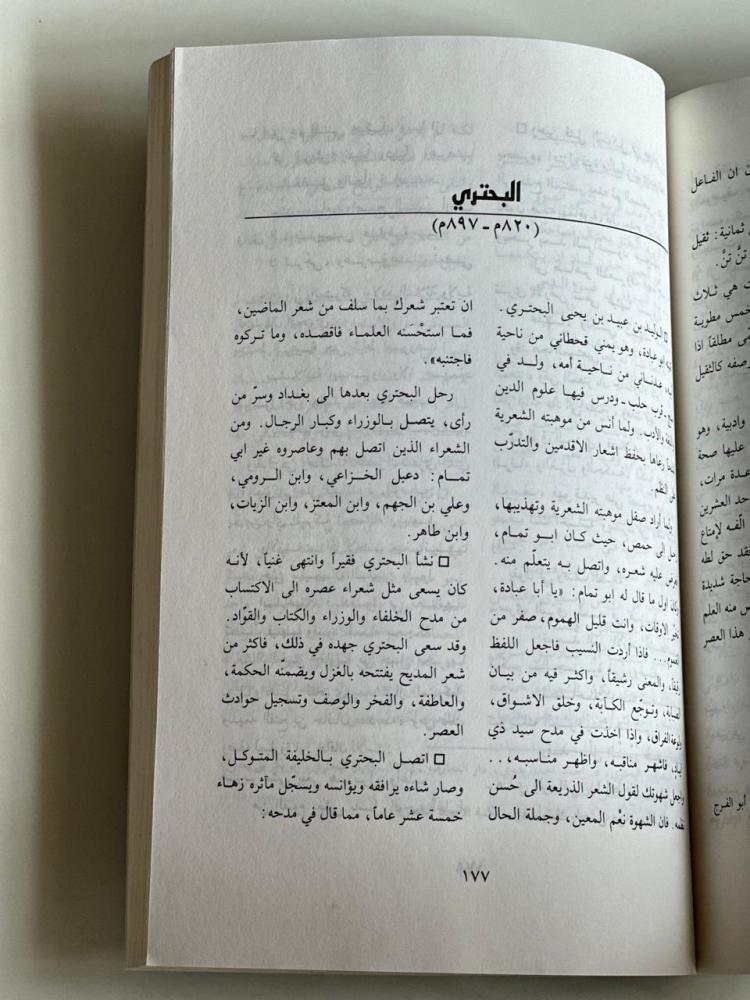 البحتري
(٨٢٠م - ٨٩٧م)
الوليد بن عبيد بن يحيى البحتري.
ابو عبادة، وهو يمني قحطاني من ناحية
عدناني من ناحية أمه، ولد في
قرب حلب - ودرس فيها علوم الدين
والأدب. ولما أنس من موهبته الشعرية
رعاها بحفظ اشعار الاقدمين والتدرّب
على النظم.
ولما أراد صقل موهبته الشعرية وتهذيبها،
رحل الى حمص، حيث كان ابو تمام،
يعرض عليه شعره، واتصل به يتعلّم منه.
وكان اول ما قال له ابو تمام: «يا أبا عبادة،
الاوقات، وانت قليل الهموم، صفر من
الغموم... فاذا أردت النسيب فاجعل اللفظ
رقيقاً، والمعنى رشيقاً، واكثر فيه من بيان
الصبابة، وتوجّع الكآبة، وخلق الاشواق،
ولوعة الفراق، واذا اخذت في مدح سيد ذي
فاشهر مناقبه، واظهر مناسبه،..
واجعل شهوتك لقول الشعر الذريعة الى حُسن
نظمه. فان الشهوة نعْم المعين، وجملة الحال
ان تعتبر شعرك بما سلف من شعر الماضين،
فما استحْسَنه العلماء فاقصده، وما تركوه
فاجتنبه».
رحل البحتري بعدها الى بغداد وسرّ من
رأى، يتصل بالوزراء وكبار الرجال. ومن
الشعراء الذين اتصل بهم وعاصروه غير ابي
تمام: دعبل الخزاعي، وابن الرومي،
وعلي بن الجهم، وابن المعتز، وابن الزيات،
وابن طاهر.
□ نشأ البحتري فقيراً وانتهى غنياً، لأنه
كان يسعى مثل شعراء عصره الى الاكتساب
من مدح الخلفاء والوزراء والكتاب والقوّاد.
وقد سعى البحتري جهده في ذلك، فاكثر من
شعر المديح يفتتحه بالغزل ويضمنّه الحكمة،
والعاطفة، والفخر والوصف وتسجيل حوادث
العصر.
□ اتصل البحتري بالخليفة المتوكل،
وصار شاءه يرافقه ويؤانسه ويسجّل مآثره زهاء
خمسة عشر عاماً، مما قال في مدحه:
١٧٧
ان الفاعل
ثمانية: ثقيل
تنَّ تنَّ.
هي ثلاث
خمس مطوية
مطلقاً اذا
كالثقيل
وادبية، وهو
عليها صحة
عدة مرات،
حد العشرين
الّفه لإمتاع
فقد حق لطه
حاجة شديدة
منه العلم
هذا العصر
أبو الفرج